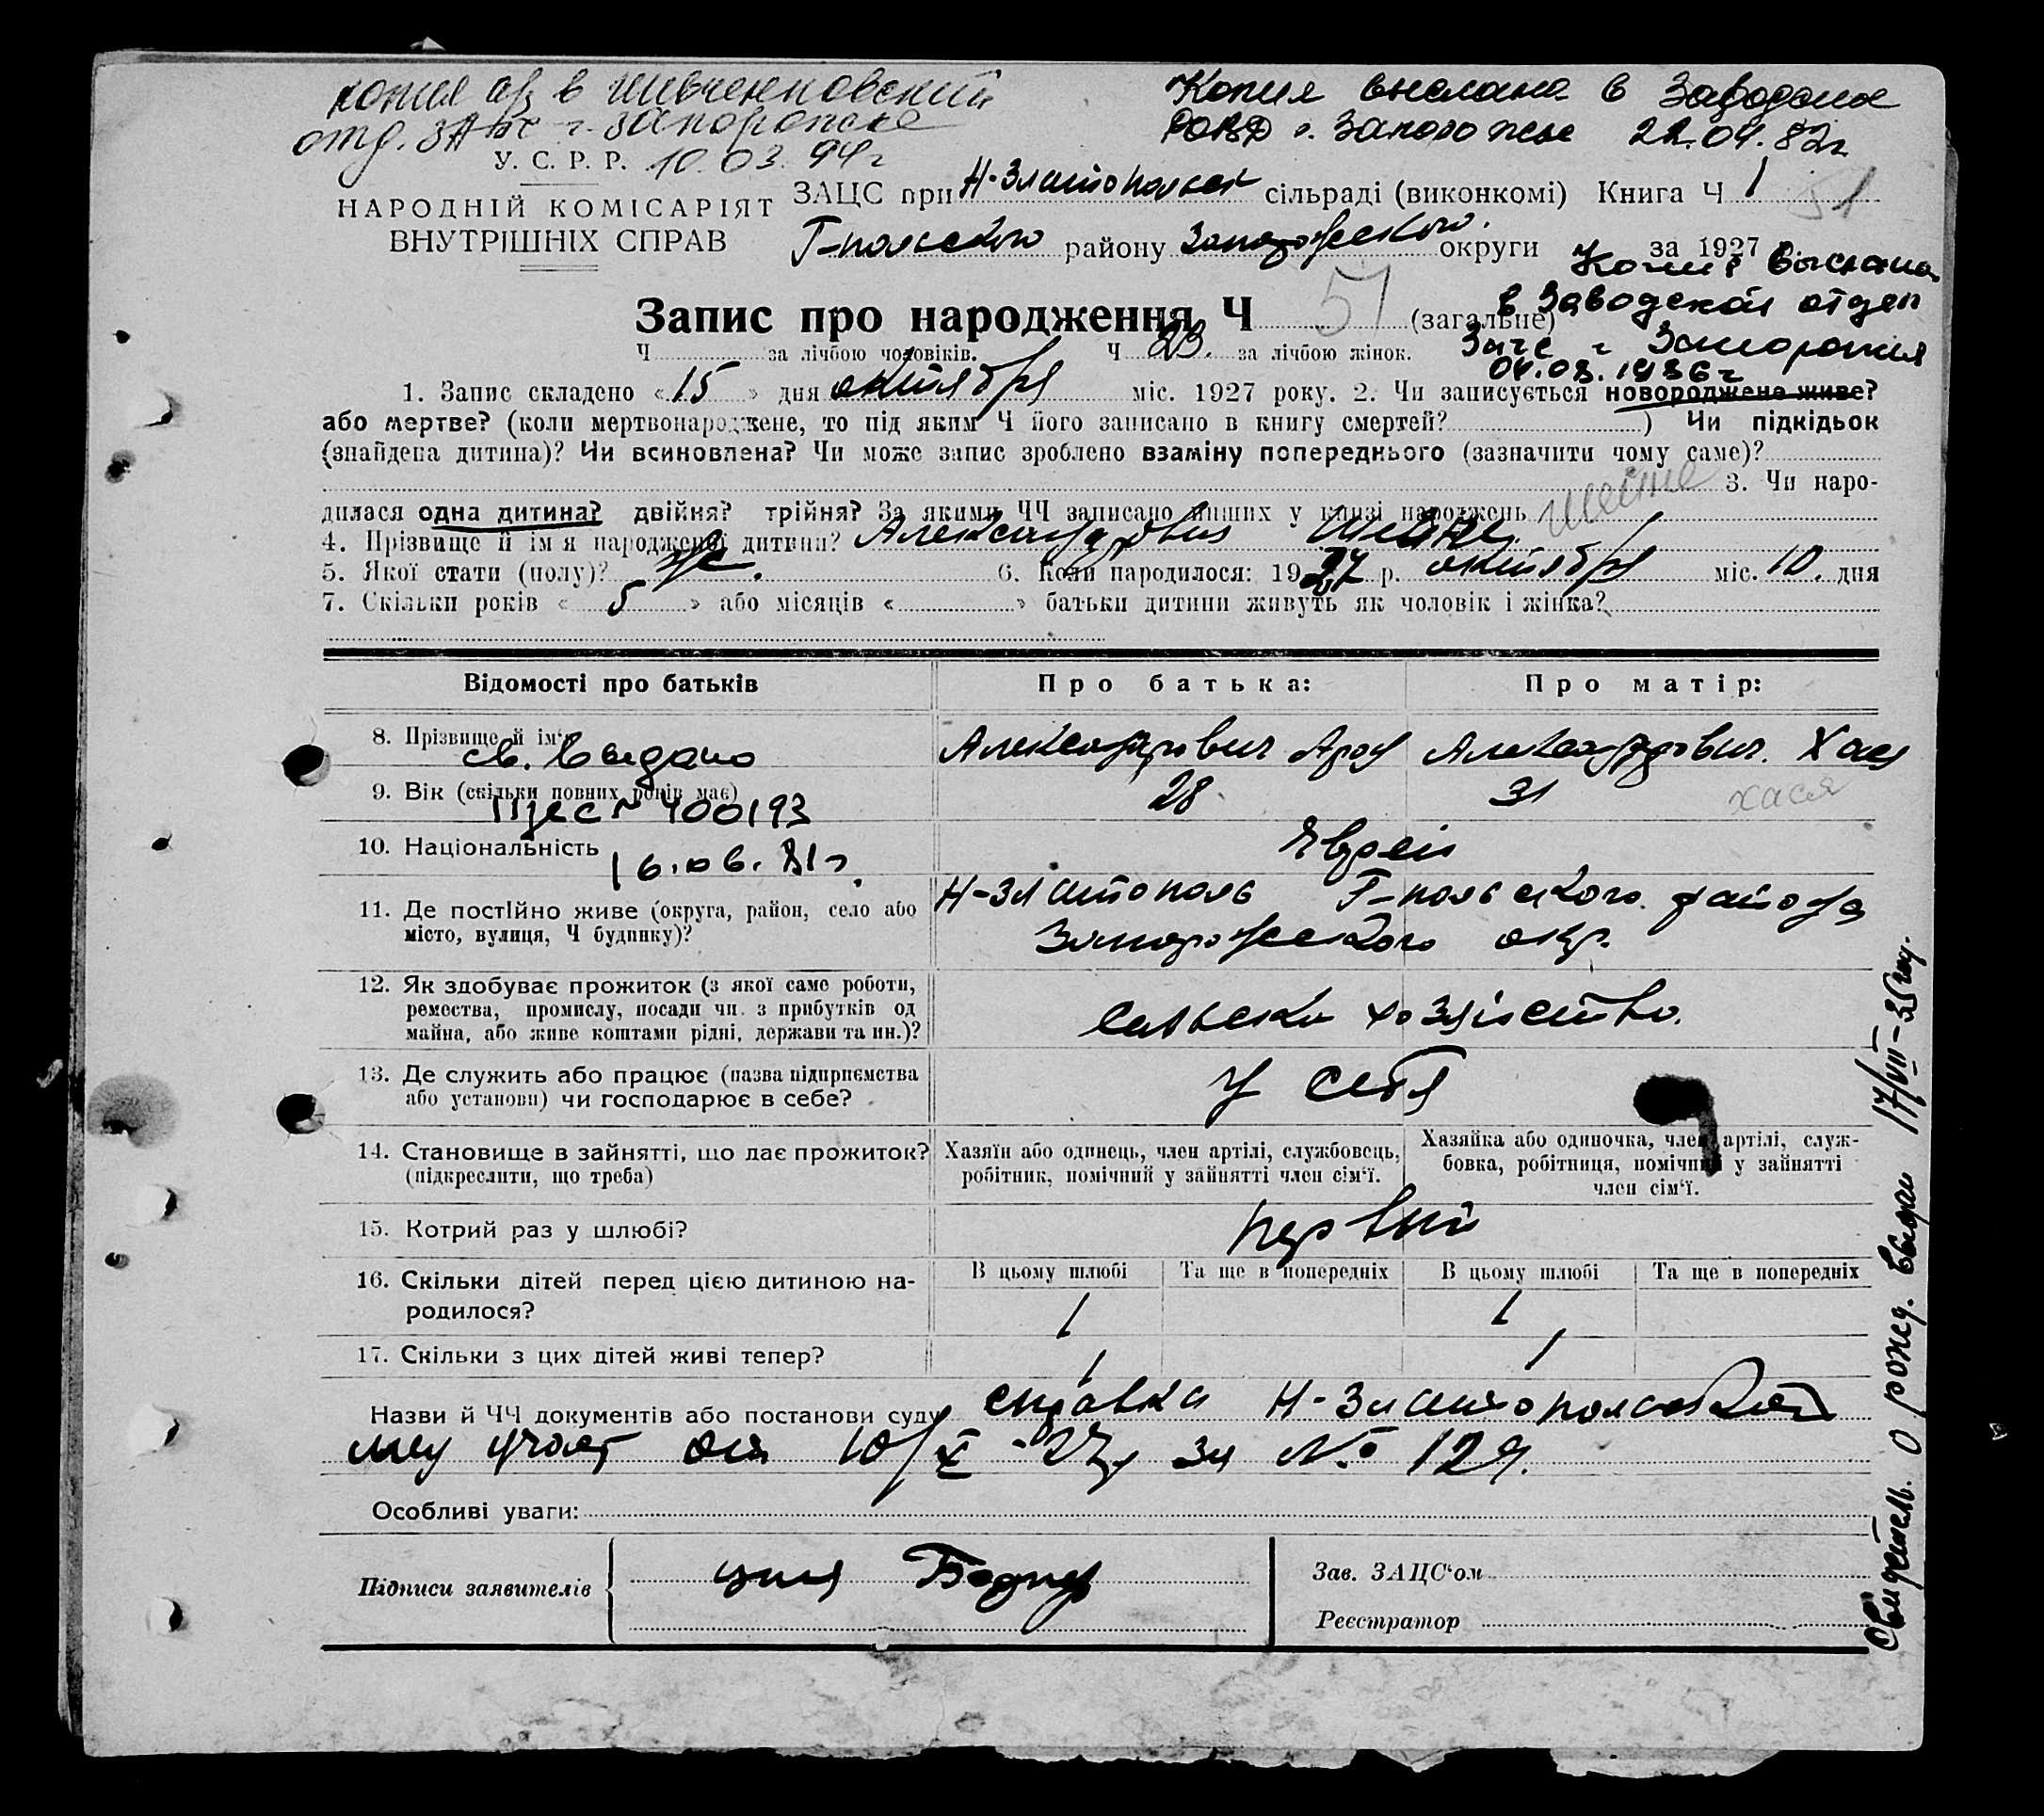 копия а/з в Шевченковский
отд. ЗАГС г. Запорожье
10.03.94г
Копия выслана в Заводской
РОВД г. Запорожье 22.04.82г
У. С. Р. Р.
НАРОДНІЙ КОМІСАРІЯТ
ВНУТРІШНІХ СПРАВ
ЗАЦС при Н-Златопольск сільраді (виконкомі) Книга Ч 1
51
Г-польского району Запорожского округи за 1927
Копия выслана
в Заводской отдел
Загс г Запорожья
04.03.1986г
Запис про народження Ч 51 (загальне)
Ч за лічбою чоловіків. Ч 23. за лічбою жінок.
1. Запис складено «15» дня октября міс. 1927 року. 2. Чи записується новороджене живе?
або мертве? (коли мертвонароджене, то під яким Ч його записано в книгу смертей? ) Чи підкідьок
(знайдена дитина)? Чи всиновлена? Чи може запис зроблено взаміну попереднього (зазначити чому саме)?
3. Чи наро-
дилася одна дитина? двійня? трійня? За якими ЧЧ записано инших у книзі народжень
4. Прізвище й ім'я народженої дитини? Александрович
5. Якої стати (полу)? ж. 6. Коли народилося: 1927 р. октября міс. 10. дня
7. Скільки років «5» або місяців « » батьки дитини живуть як чоловік і жінка?
Відомості про батьків Про батька: Про матір:
8. Прізвище й ім'я Александрович Арон Александрович. Хася
св. выдано
9. Вік (скільки повних років має) 28 31 хася
ІІЖС № 400193
10. Національність Евреи
16.06.81г.
11. Де постійно живе (округа, район, село або
місто, вулиця, Ч будинку)?
Н-Златополь Г-польского района
Запорожского окр.
12. Як здобуває прожиток (з якої саме роботи,
ремества, промислу, посади чи з прибутків од
майна, або живе коштами рідні, держави та ин.)?
сельско хозяйство.
13. Де служить або працює (назва підприємства
або установи) чи господарює в себе?
У себя
14. Становище в зайнятті, що дає прожиток?
(підкреслити, що треба)
Хазяїн або одинець, член артілі, службовець,
робітник, помічний у зайнятті член сім'ї.
Хазяйка або одиночка, член артілі, служ-
бовка, робітниця, помічний у зайнятті
член сім'ї.
15. Котрий раз у шлюбі? первый
16. Скільки дітей перед цією дитиною на-
родилося?
В цьому шлюбі Та ще в попередніх В цьому шлюбі Та ще в попередніх
1 1
17. Скільки з цих дітей живі тепер? 1 1
Назви й ЧЧ документів або постанови суду справка Н-Златопольской
мед участ от 10/X-27г за № 129.
Особливі уваги:
Підписи заявителів
Зав. ЗАЦС'ом
Реєстратор
Свидетель. о рожд. выдан 17/VIII-35год.